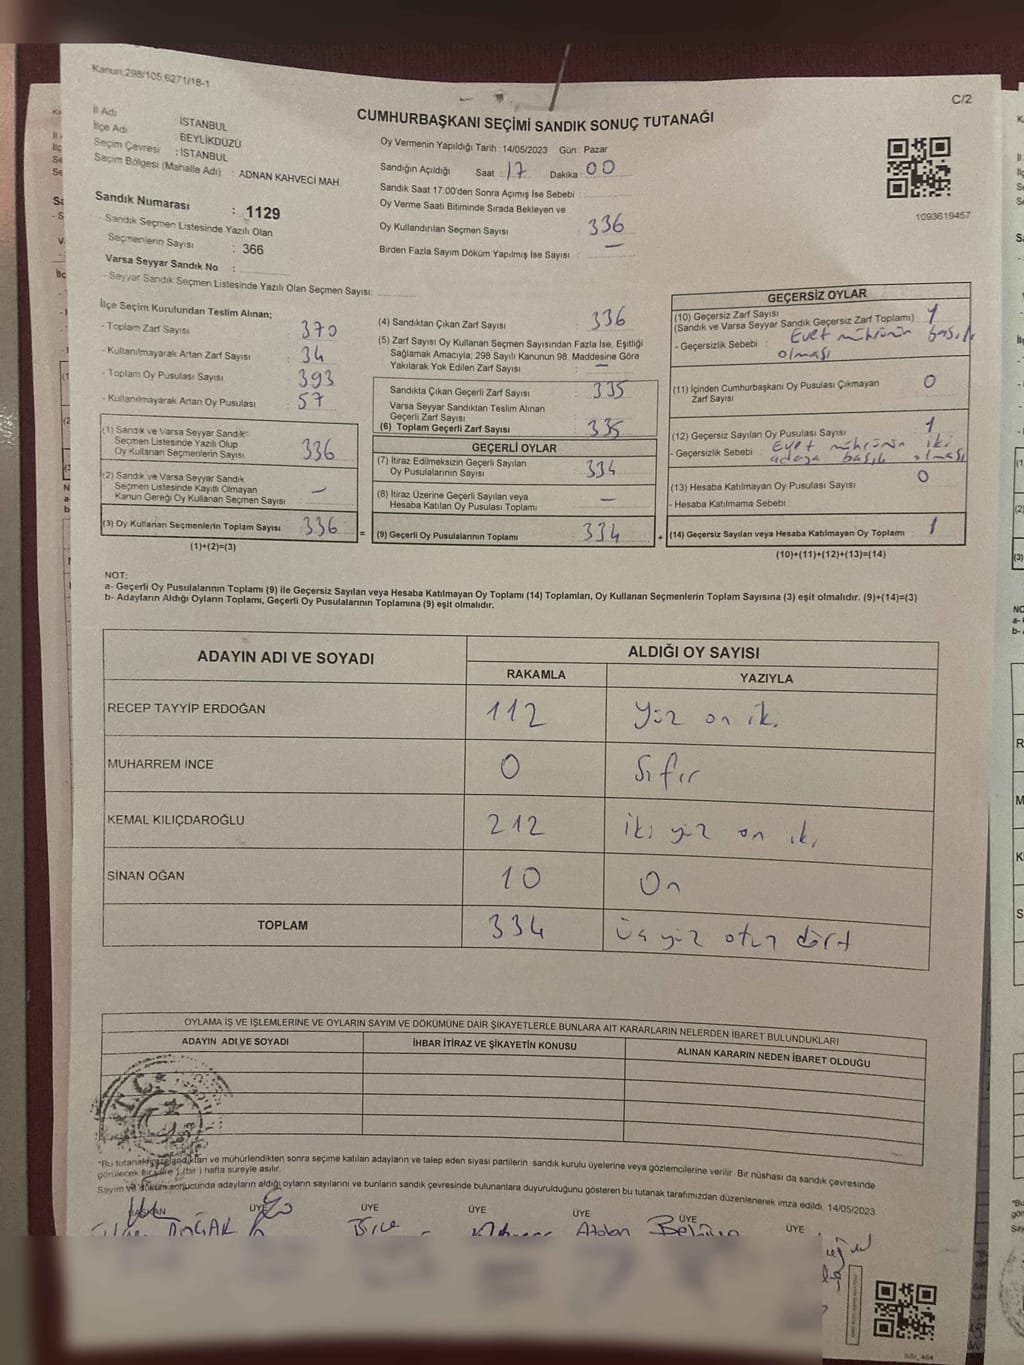 Kanun:298/105,6271/18-1
C/2
CUMHURBAŞKANI SEÇİMİ SANDIK SONUÇ TUTANAĞI
İl Adı İSTANBUL
İlçe Adı : BEYLİKDÜZÜ
Seçim Çevresi : İSTANBUL
Seçim Bölgesi (Mahalle Adı) : ADNAN KAHVECİ MAH
Sandık Numarası : 1129
- Sandık Seçmen Listesinde Yazılı Olan
Seçmenlerin Sayısı : 366
Varsa Seyyar Sandık No :
- Seyyar Sandık Seçmen Listesinde Yazılı Olan Seçmen Sayısı:
Oy Vermenin Yapıldığı Tarih : 14/05/2023 Gün : Pazar
Sandığın Açıldığı Saat 17 Dakika 00
Sandık Saat 17:00'den Sonra Açımış İse Sebebi :
Oy Verme Saati Bitiminde Sırada Bekleyen ve
Oy Kullandırılan Seçmen Sayısı : 336
Birden Fazla Sayım Döküm Yapılmış İse Sayısı : —
1093619457
İlçe Seçim Kurulundan Teslim Alınan;
- Toplam Zarf Sayısı : 370
- Kullanılmayarak Artan Zarf Sayısı : 34
- Toplam Oy Pusulası Sayısı : 393
- Kullanılmayarak Artan Oy Pusulası : 57
(1) Sandık ve Varsa Seyyar Sandık
Seçmen Listesinde Yazılı Olup
Oy Kullanan Seçmenlerin Sayısı : 336
(2) Sandık ve Varsa Seyyar Sandık
Seçmen Listesinde Kayıtlı Olmayan
Kanun Gereği Oy Kullanan Seçmen Sayısı : —
(3) Oy Kullanan Seçmenlerin Toplam Sayısı : 336
(1)+(2)=(3)
=
(4) Sandıktan Çıkan Zarf Sayısı : 336
(5) Zarf Sayısı Oy Kullanan Seçmen Sayısından Fazla İse, Eşitliği
Sağlamak Amacıyla; 298 Sayılı Kanunun 98. Maddesine Göre
Yakılarak Yok Edilen Zarf Sayısı : —
Sandıkta Çıkan Geçerli Zarf Sayısı : 335
Varsa Seyyar Sandıktan Teslim Alınan
Geçerli Zarf Sayısı :
(6) Toplam Geçerli Zarf Sayısı : 335
GEÇERLİ OYLAR
(7) İtiraz Edilmeksizin Geçerli Sayılan
Oy Pusulalarının Sayısı : 334
(8) İtiraz Üzerine Geçerli Sayılan veya
Hesaba Katılan Oy Pusulası Toplamı : —
(9) Geçerli Oy Pusulalarının Toplamı : 334
+
GEÇERSİZ OYLAR
(10) Geçersiz Zarf Sayısı : 1
(Sandık ve Varsa Seyyar Sandık Geçersiz Zarf Toplamı)
- Geçersizlik Sebebi : Evet mührünün basılı
olması
(11) İçinden Cumhurbaşkanı Oy Pusulası Çıkmayan
Zarf Sayısı : 0
(12) Geçersiz Sayılan Oy Pusulası Sayısı : 1
- Geçersizlik Sebebi : Evet mührünün iki
adaya basılı olması
(13) Hesaba Katılmayan Oy Pusulası Sayısı : 0
- Hesaba Katılmama Sebebi :
(14) Geçersiz Sayılan veya Hesaba Katılmayan Oy Toplamı : 1
(10)+(11)+(12)+(13)=(14)
NOT:
a- Geçerli Oy Pusulalarının Toplamı (9) ile Geçersiz Sayılan veya Hesaba Katılmayan Oy Toplamı (14) Toplamları, Oy Kullanan Seçmenlerin Toplam Sayısına (3) eşit olmalıdır. (9)+(14)=(3)
b- Adayların Aldığı Oyların Toplamı, Geçerli Oy Pusulalarının Toplamına (9) eşit olmalıdır.
ADAYIN ADI VE SOYADI
ALDIĞI OY SAYISI
RAKAMLA YAZIYLA
RECEP TAYYİP ERDOĞAN 112 Yüz on iki
MUHARREM İNCE 0 Sıfır
KEMAL KILIÇDAROĞLU 212 iki yüz on iki
SİNAN OĞAN 10 On
TOPLAM 334 Üç yüz otuz dört
OYLAMA İŞ VE İŞLEMLERİNE VE OYLARIN SAYIM VE DÖKÜMÜNE DAİR ŞİKAYETLERLE BUNLARA AİT KARARLARIN NELERDEN İBARET BULUNDUKLARI
ADAYIN ADI VE SOYADI İHBAR İTİRAZ VE ŞİKAYETİN KONUSU ALINAN KARARIN NEDEN İBARET OLDUĞU
*Bu tutanak ve mühürlendikten sonra seçime katılan adayların ve talep eden siyasi partilerin sandık kurulu üyelerine veya gözlemcilerine verilir. Bir nüshası da sandık çevresinde
görülecek bir yere 1 (bir) hafta süreyle asılır.
Sayım ve döküm sonucunda adayların aldığı oyların sayılarını ve bunların sandık çevresinde bulunanlara duyurulduğunu gösteren bu tutanak tarafımızdan düzenlenerek imza edildi. 14/05/2023
BAŞKAN ÜYE ÜYE ÜYE ÜYE ÜYE ÜYE